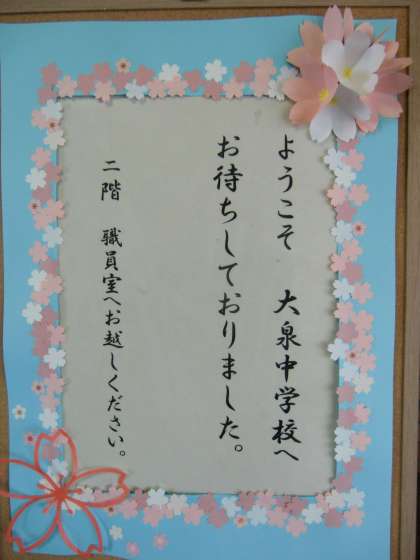 ようこそ　大泉中学校へ
お待ちしておりました。
二階　職員室へお越しください。